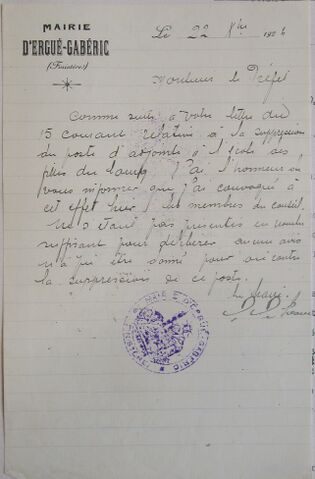 MAIRIE
D'ERGUÉ-GABÉRIC
(Finistère)
Le 22 Xbre 192
Monsieur le Préfet
Comme suite à votre lettre du
15 courant relative à la suppression
du poste d'adjointe à l'école des
filles du bourg, j'ai l'honneur de
vous informer que j'ai convoqué à
cet effet hier les membres du conseil.
Ne s'étant pas présentés en nombre
suffisant pour délibérer aucun avis
n'a pu être donné pour ou contre
la suppression de ce poste.
Le maire
MAIRIE D'ERGUÉ-GABÉRIC